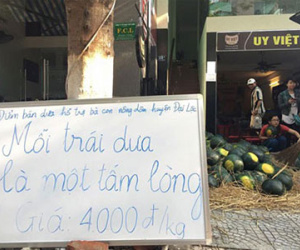 Điểm bán dưa hỗ trợ bà con nông dân huyện Đại Lộc
Mỗi trái dưa
là một tấm lòng
Giá: 4000 đ/kg
F.C.I.
UY VIỆT